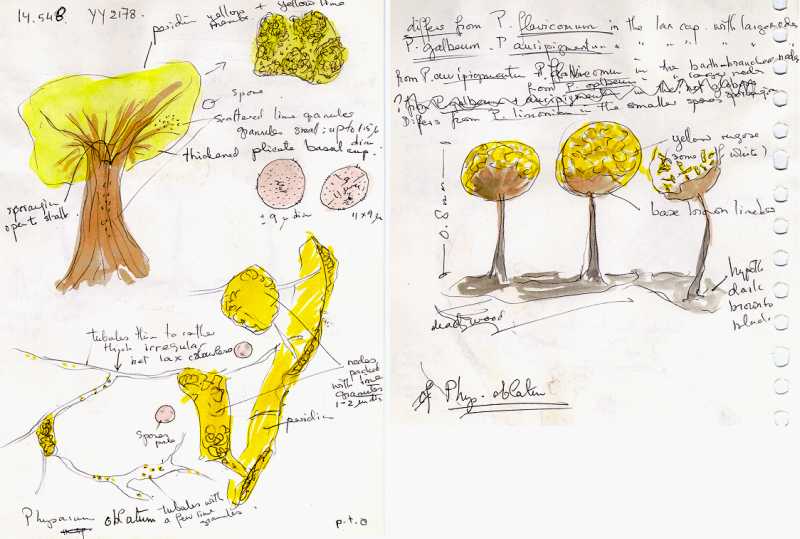 14.548 YY2178.
peridium yellow + yellow lime
spore
scattered lime granules
granules small: up to 1.5 µ
diam
thickened plicate basal cup.
sporangium
open to stalk
± 9 µ diam
11 x 9 µ
tubules thin to rather
thick irregular
net lax colourless
nodes
packed
with lime
granules
1-2 µ dia
peridium
spores
pale
tubules with
a few lime
granules.
Physarum oblatum
p.t.o
differs from P. flavicomum in the lax cap. with larger nodes
P. galbeum. P auripigmentum " " " " "
from P. auripigmentum P. flavicomum in the
larger nodes
from P. galbeum
? from P. galbeum + auripigmentum in the ? not globose
Differs from P. limonium in the smaller spores sporangia
yellow rugose
(some white)
base brown limeless
0.8
hypoth
dark
brown to
black
dead wood
Phys. oblatum